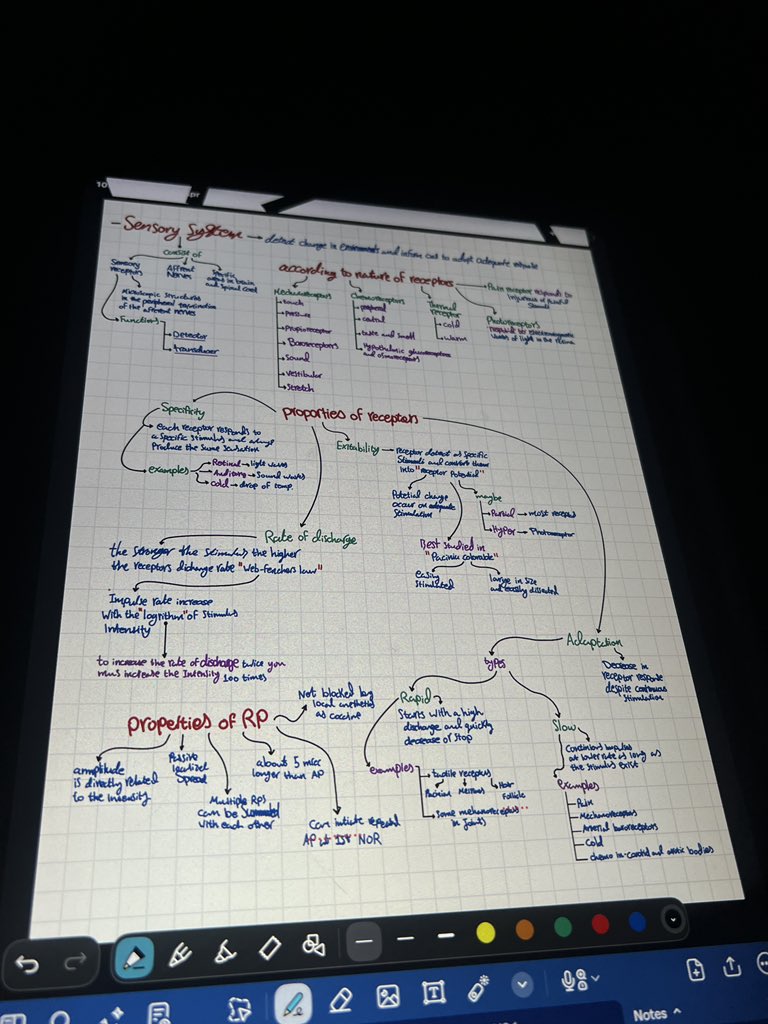 - Sensory System → detect change in and inform CNS to adapt adequate
consist of
Sensory receptors
Affrent Nerves
Specific areas in brain and spinal cord
Microscopic structures in the peripheral termination of the afferent nerves
Function
Detector
transducer
according to nature of receptors
Mechanoreceptors
touch
pressure
Propioreceptor
Baroreceptors
sound
vestibular
stretch
Chemoreceptors
peripheral
central
taste and smell
Hypothalamic glucoreceptors and osmoreceptors
thermal receptor
cold
warm
Pain receptor responds to injurious or painful stimuli
Photoreceptors
respond to electromagnetic waves of light in the retina
proporties of receptors
Specificity
each receptor responds to
a specific stimulus and always
Produce the same sensation
examples
Retinal → light waves
Auditory → Sound waves
cold → drop of temp.
Exitability → receptor detect a specific
Stimuli and convert them
into "receptor Potential"
Potetial change
occur on adequate
stimulation
maybe
Partial → most receptors
Hyper → Photoreceptor
Best studied in
"Pacinia
easily
Stimulated
large in size
and easily dissected
Rate of discharge
the stronger the stimulus the higher
the receptors dicharge rate "web-fenchers law"
Impulse rate increase
with the "logrithm" of stimulus
Intensity
to increase the rate of discharge twice you
must increase the Intensity 100 times
Adaptation
Decrease in
receptor response
despite continuous
Stimulation
types
Rapid
Starts with a high
discharge and quickly
decrease or stop
examples
tactile receptors
Pacinian
Meissners
Hair
follicle
Some mechanoreceptors
in joints
Slow
Continious impulses
at lower rate as long as
the stimulus exist
examples
Pain
Mechanoreceptors
Arterial baroreceptors
Cold
chemo in carotid and aortic bodies
properties of RP
Not blocked by
local anethetics
as cocaine
amplitude
is directly related
to the intensity
Passive
localized
Spread
Multiple RPs
can be Summated
with each other
about 5 msec
longer than AP
Can initiate repeated
AP NOR
T
Notes